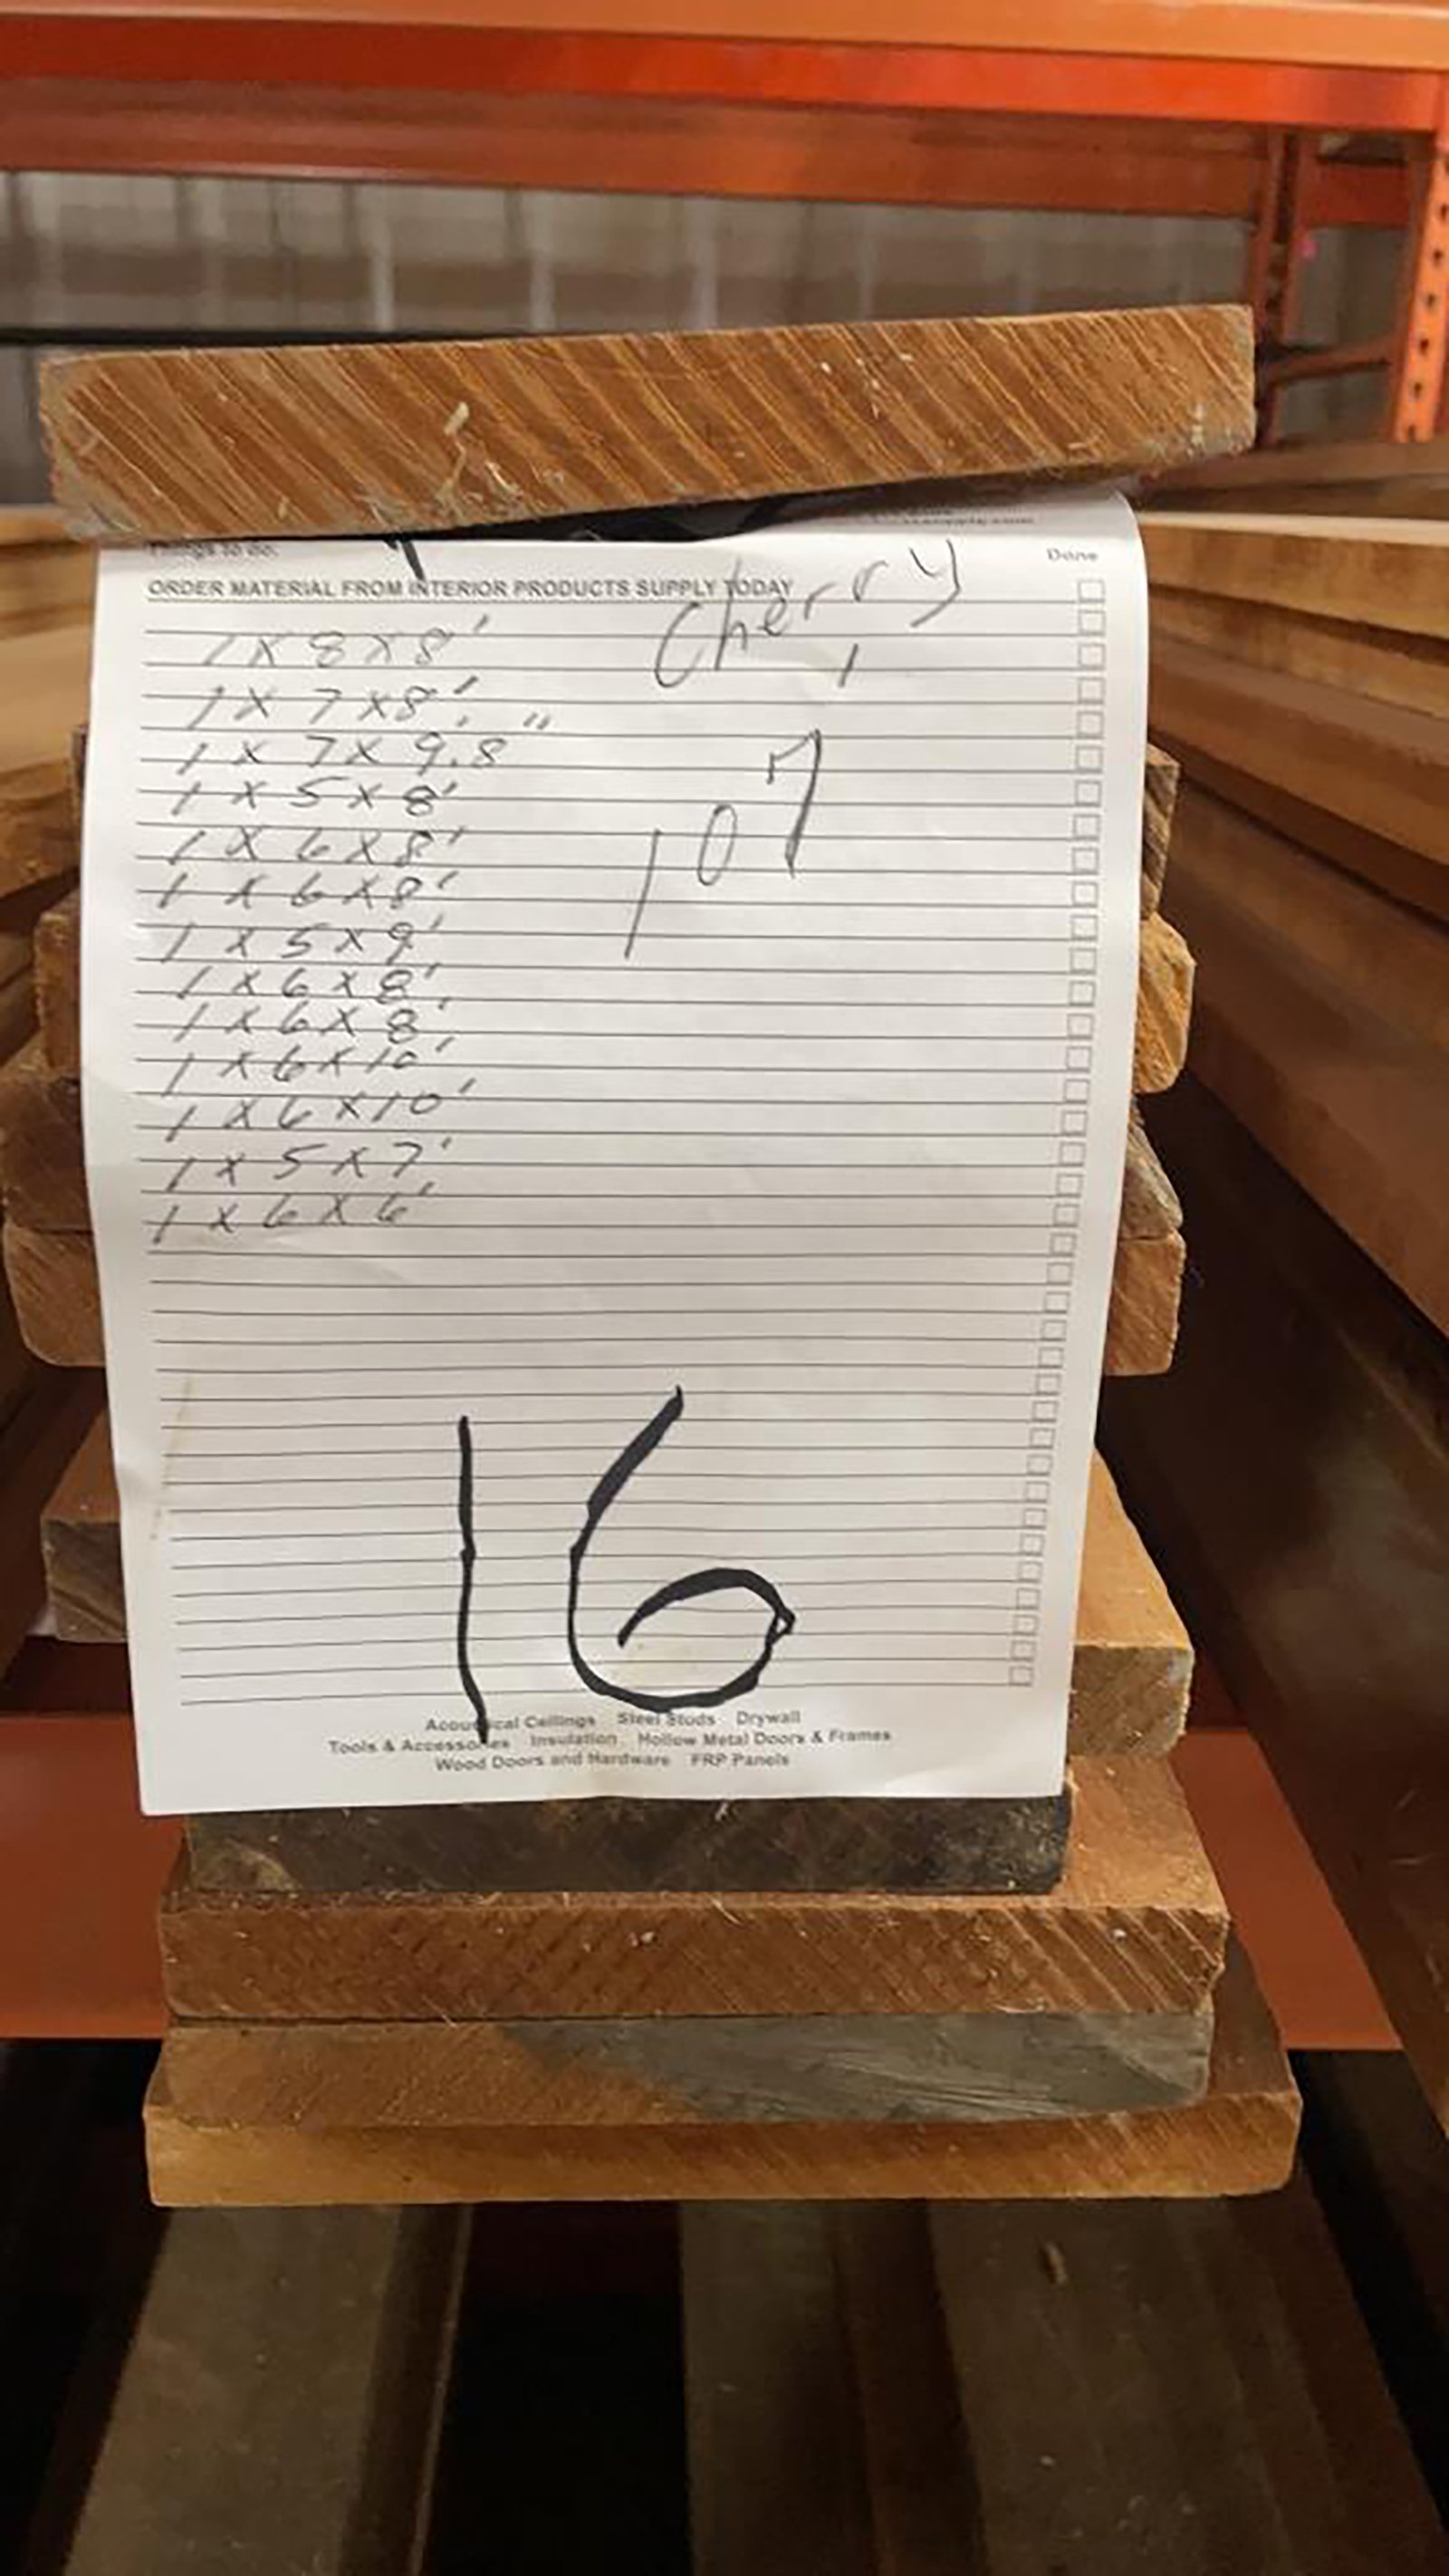 Things to do:
Done
ORDER MATERIAL FROM INTERIOR PRODUCTS SUPPLY TODAY
Cherry
1 x 8 x 8'
1 x 7 x 8'
1 x 7 x 9' 8"
1 x 5 x 8'
107
1 x 6 x 8'
1 x 6 x 8'
1 x 5 x 9'
1 x 6 x 8'
1 x 6 x 8'
1 x 6 x 10'
1 x 6 x 10'
1 x 5 x 7'
1 x 6 x 6'
16
Acoustical Ceilings Steel Studs Drywall
Tools & Accessories Insulation Hollow Metal Doors & Frames
Wood Doors and Hardware FRP Panels